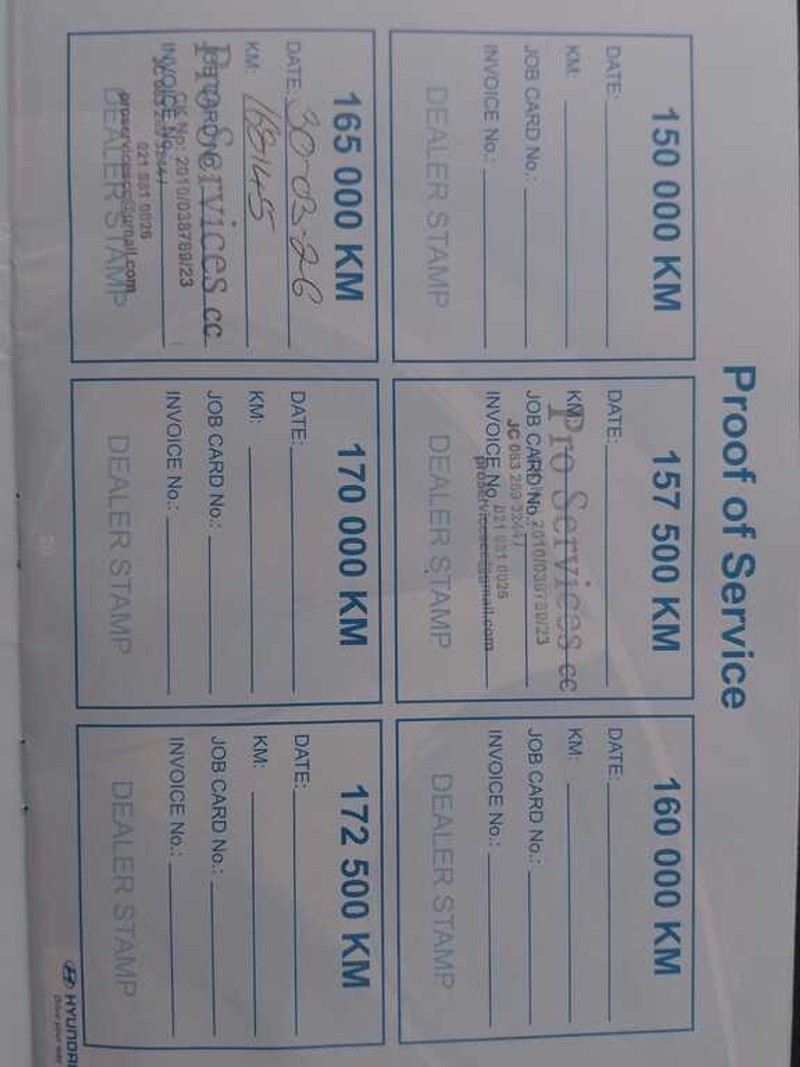 Proof of Service
150 000 KM
DATE:
KM:
JOB CARD No.:
INVOICE No.:
DEALER STAMP
157 500 KM
DATE:
KM:
Pro Services cc
JOB CARD No.:
2010/038789/23
JC 083 289
INVOICE No.
021 981 0026
proservicescc@gmail.com
DEALER STAMP
160 000 KM
DATE:
KM:
JOB CARD No.:
INVOICE No.:
DEALER STAMP
165 000 KM
DATE: 30-03-26
KM: 168145
JOB CARD No.
Pro Services cc
CK No: 2010/038789/23
INVOICE No.:
021 981 0026
proservicescc@gmail.com
DEALER STAMP
170 000 KM
DATE:
KM:
JOB CARD No.:
INVOICE No.:
DEALER STAMP
172 500 KM
DATE:
KM:
JOB CARD No.:
INVOICE No.:
DEALER STAMP
20
HYUNDAI